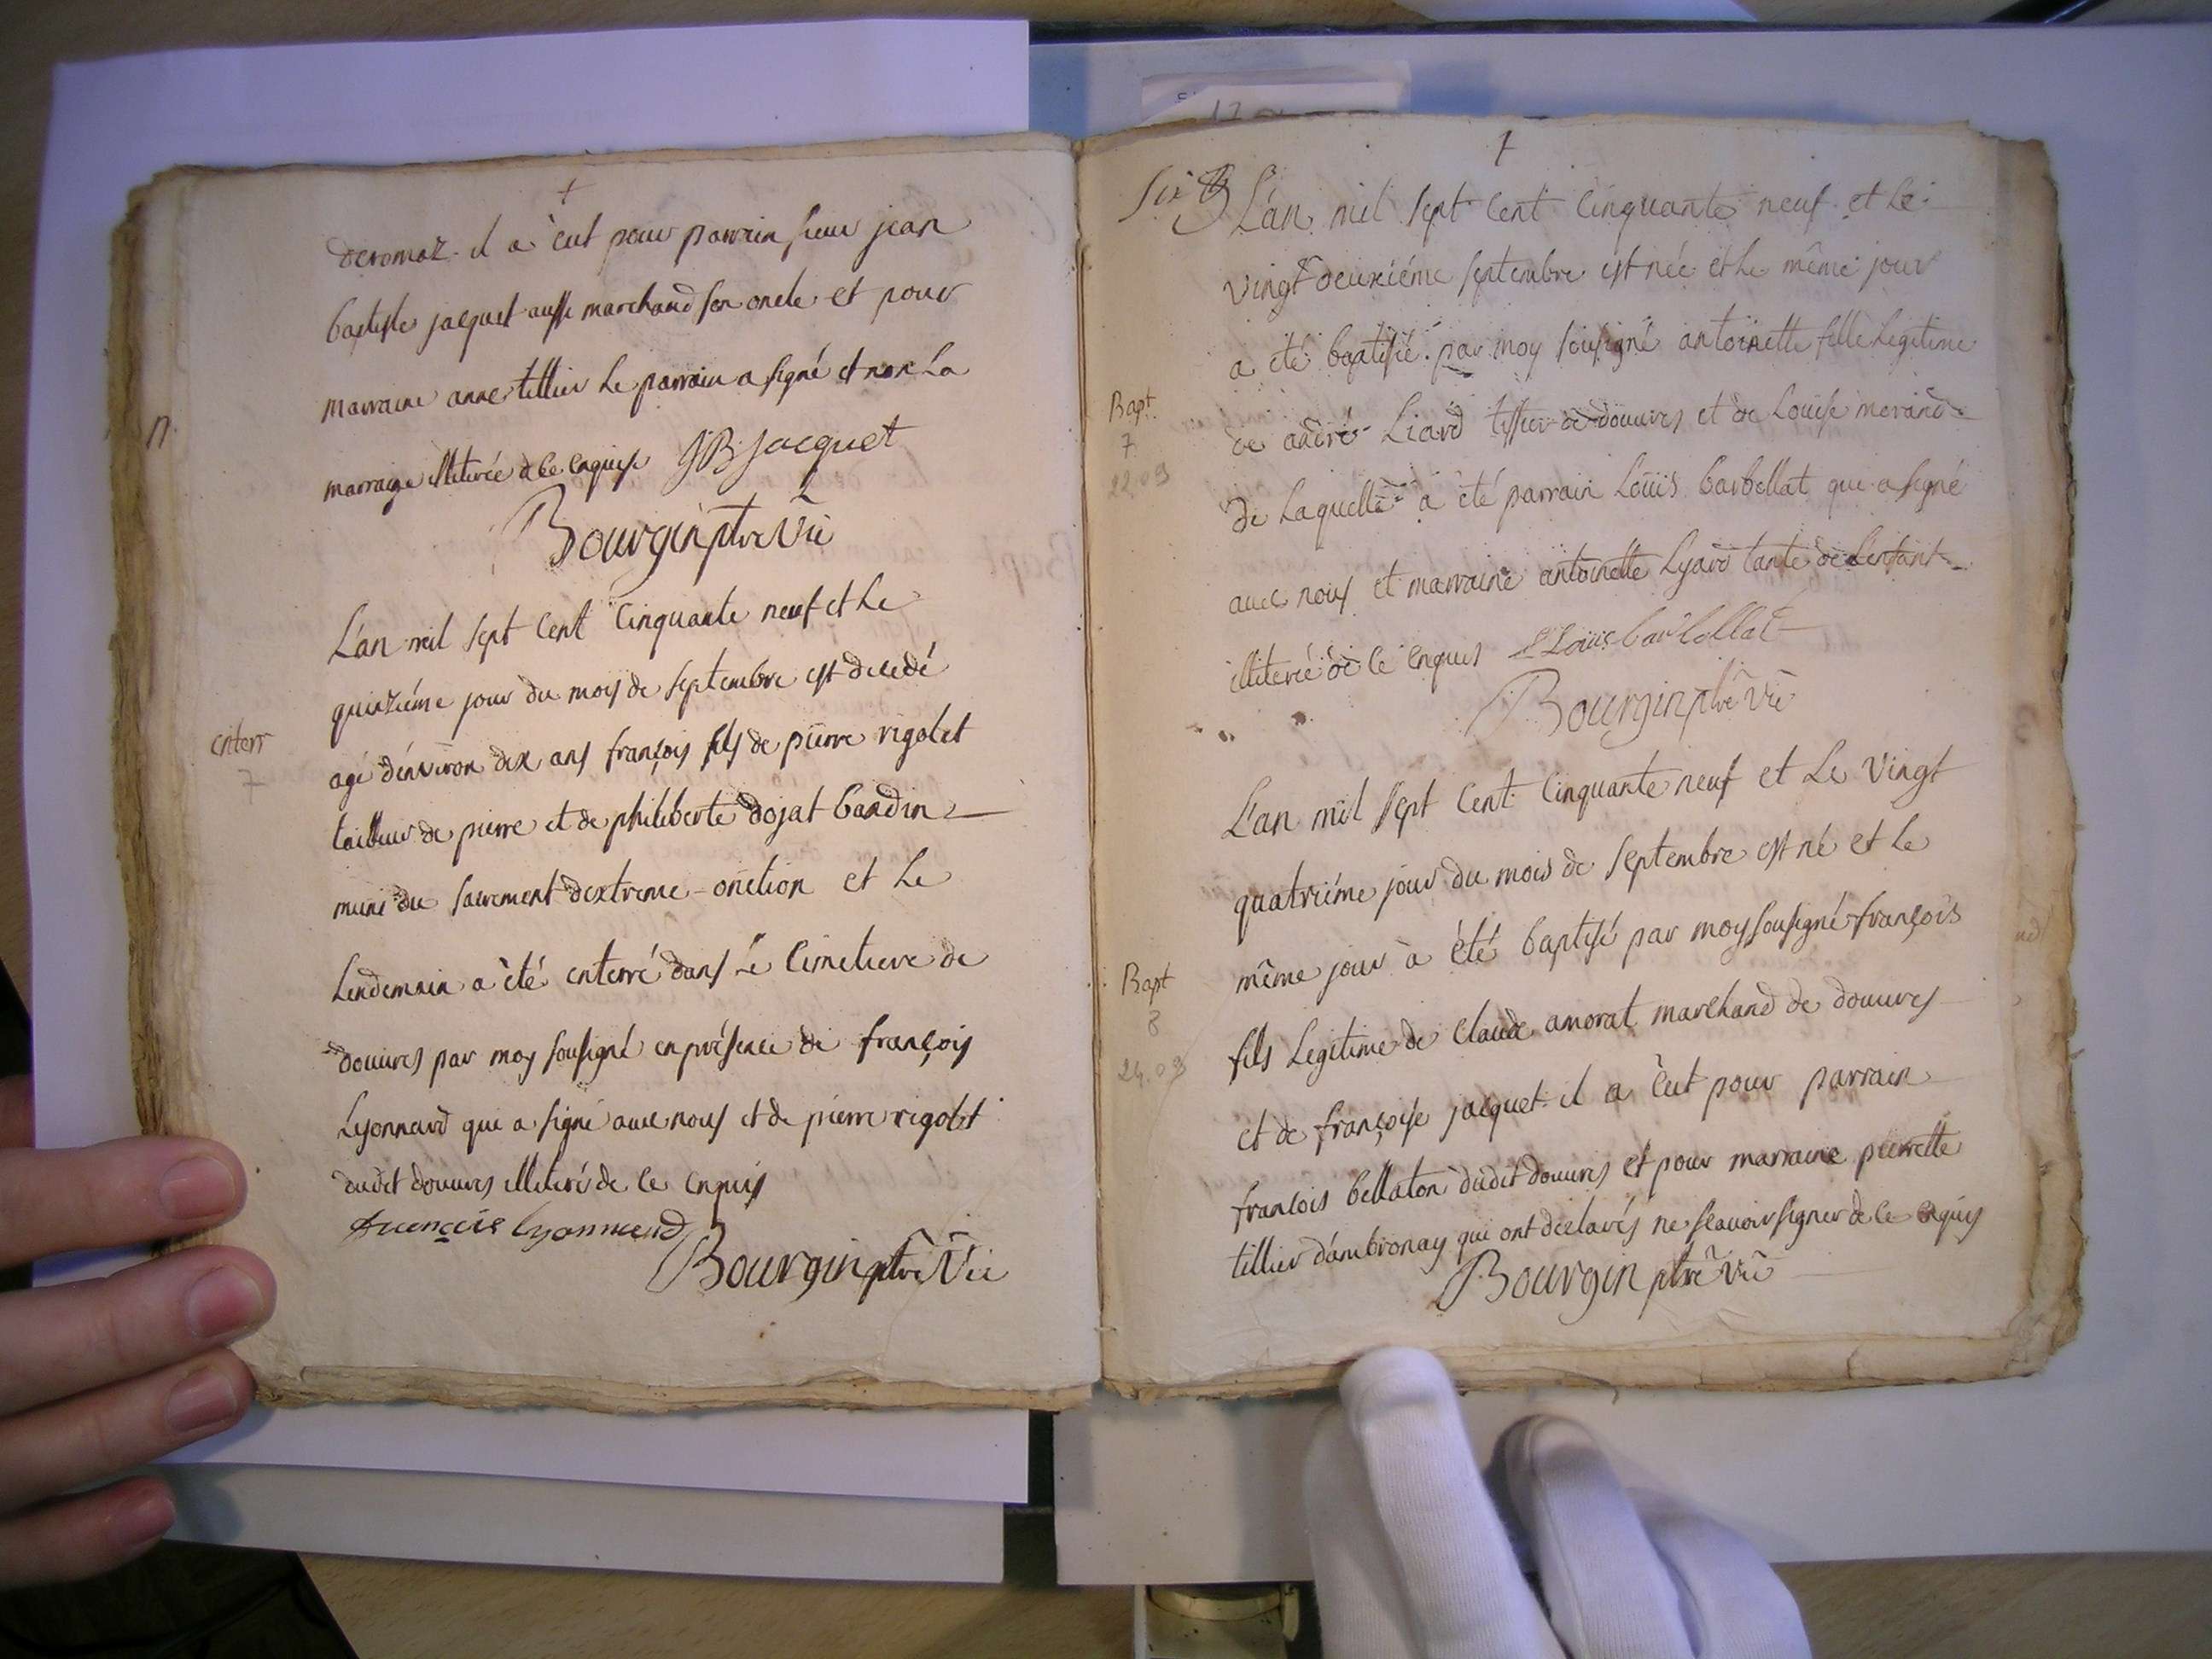 deromaz. il a èut pour parrain sieur jean
baptiste jacquet aussi marchand son oncle et pour
marraine anne tillier Le parrain a signé et non La
marraine illiterée de ce enquise JB Jacquet
Bourgin ptre Vic
L'an mil sept Cent Cinquante neuf et Le
quinziéme jour du mois de septembre est decedé
agé d'environ dix ans françois fils de pierre rigolet
tailleur de pierre et de philiberte dojat bardin
muni du sacrement d'extreme-onction et Le
Lendemain a été enterré dans Le Cimetiere de
douvres par moy sousigné en présence de françois
Lyonnard qui a signé avec nous et de pierre rigolet
dudit douvres illiteré de ce enquis
françois lyonnard
Bourgin ptre Vic
enterr
7
six
L'an mil sept Cent Cinquante neuf et Le
vingt deuxiéme septembre est née et Le même jour
a été baptisée par moy sousigné antoinette fille Legitime
de andré Liard tissier de douvres et de Louise morand
de Laquelle a été parrain Loüis barbollat qui a signé
avec nous et marraine antoinette Lyard tante de L'enfant
illiterée de ce enquis Louis barbollat
Bourgin ptre Vic
Bapt
7
22.09
L'an mil sept Cent Cinquante neuf et Le Vingt
quatriéme jour du mois de septembre est né et Le
même jour à été baptisé par moy sousigné françois
fils Legitime de Claude amorat marchand de douvres
et de françoise jacquet. il a èut pour parrain
francois bellaton dudit douvres et pour marraine pierrette
tillier d'ambronay qui ont déclarés ne sçavoir signer de ce enquis
Bourgin ptre Vic
Bapt
8
24.09